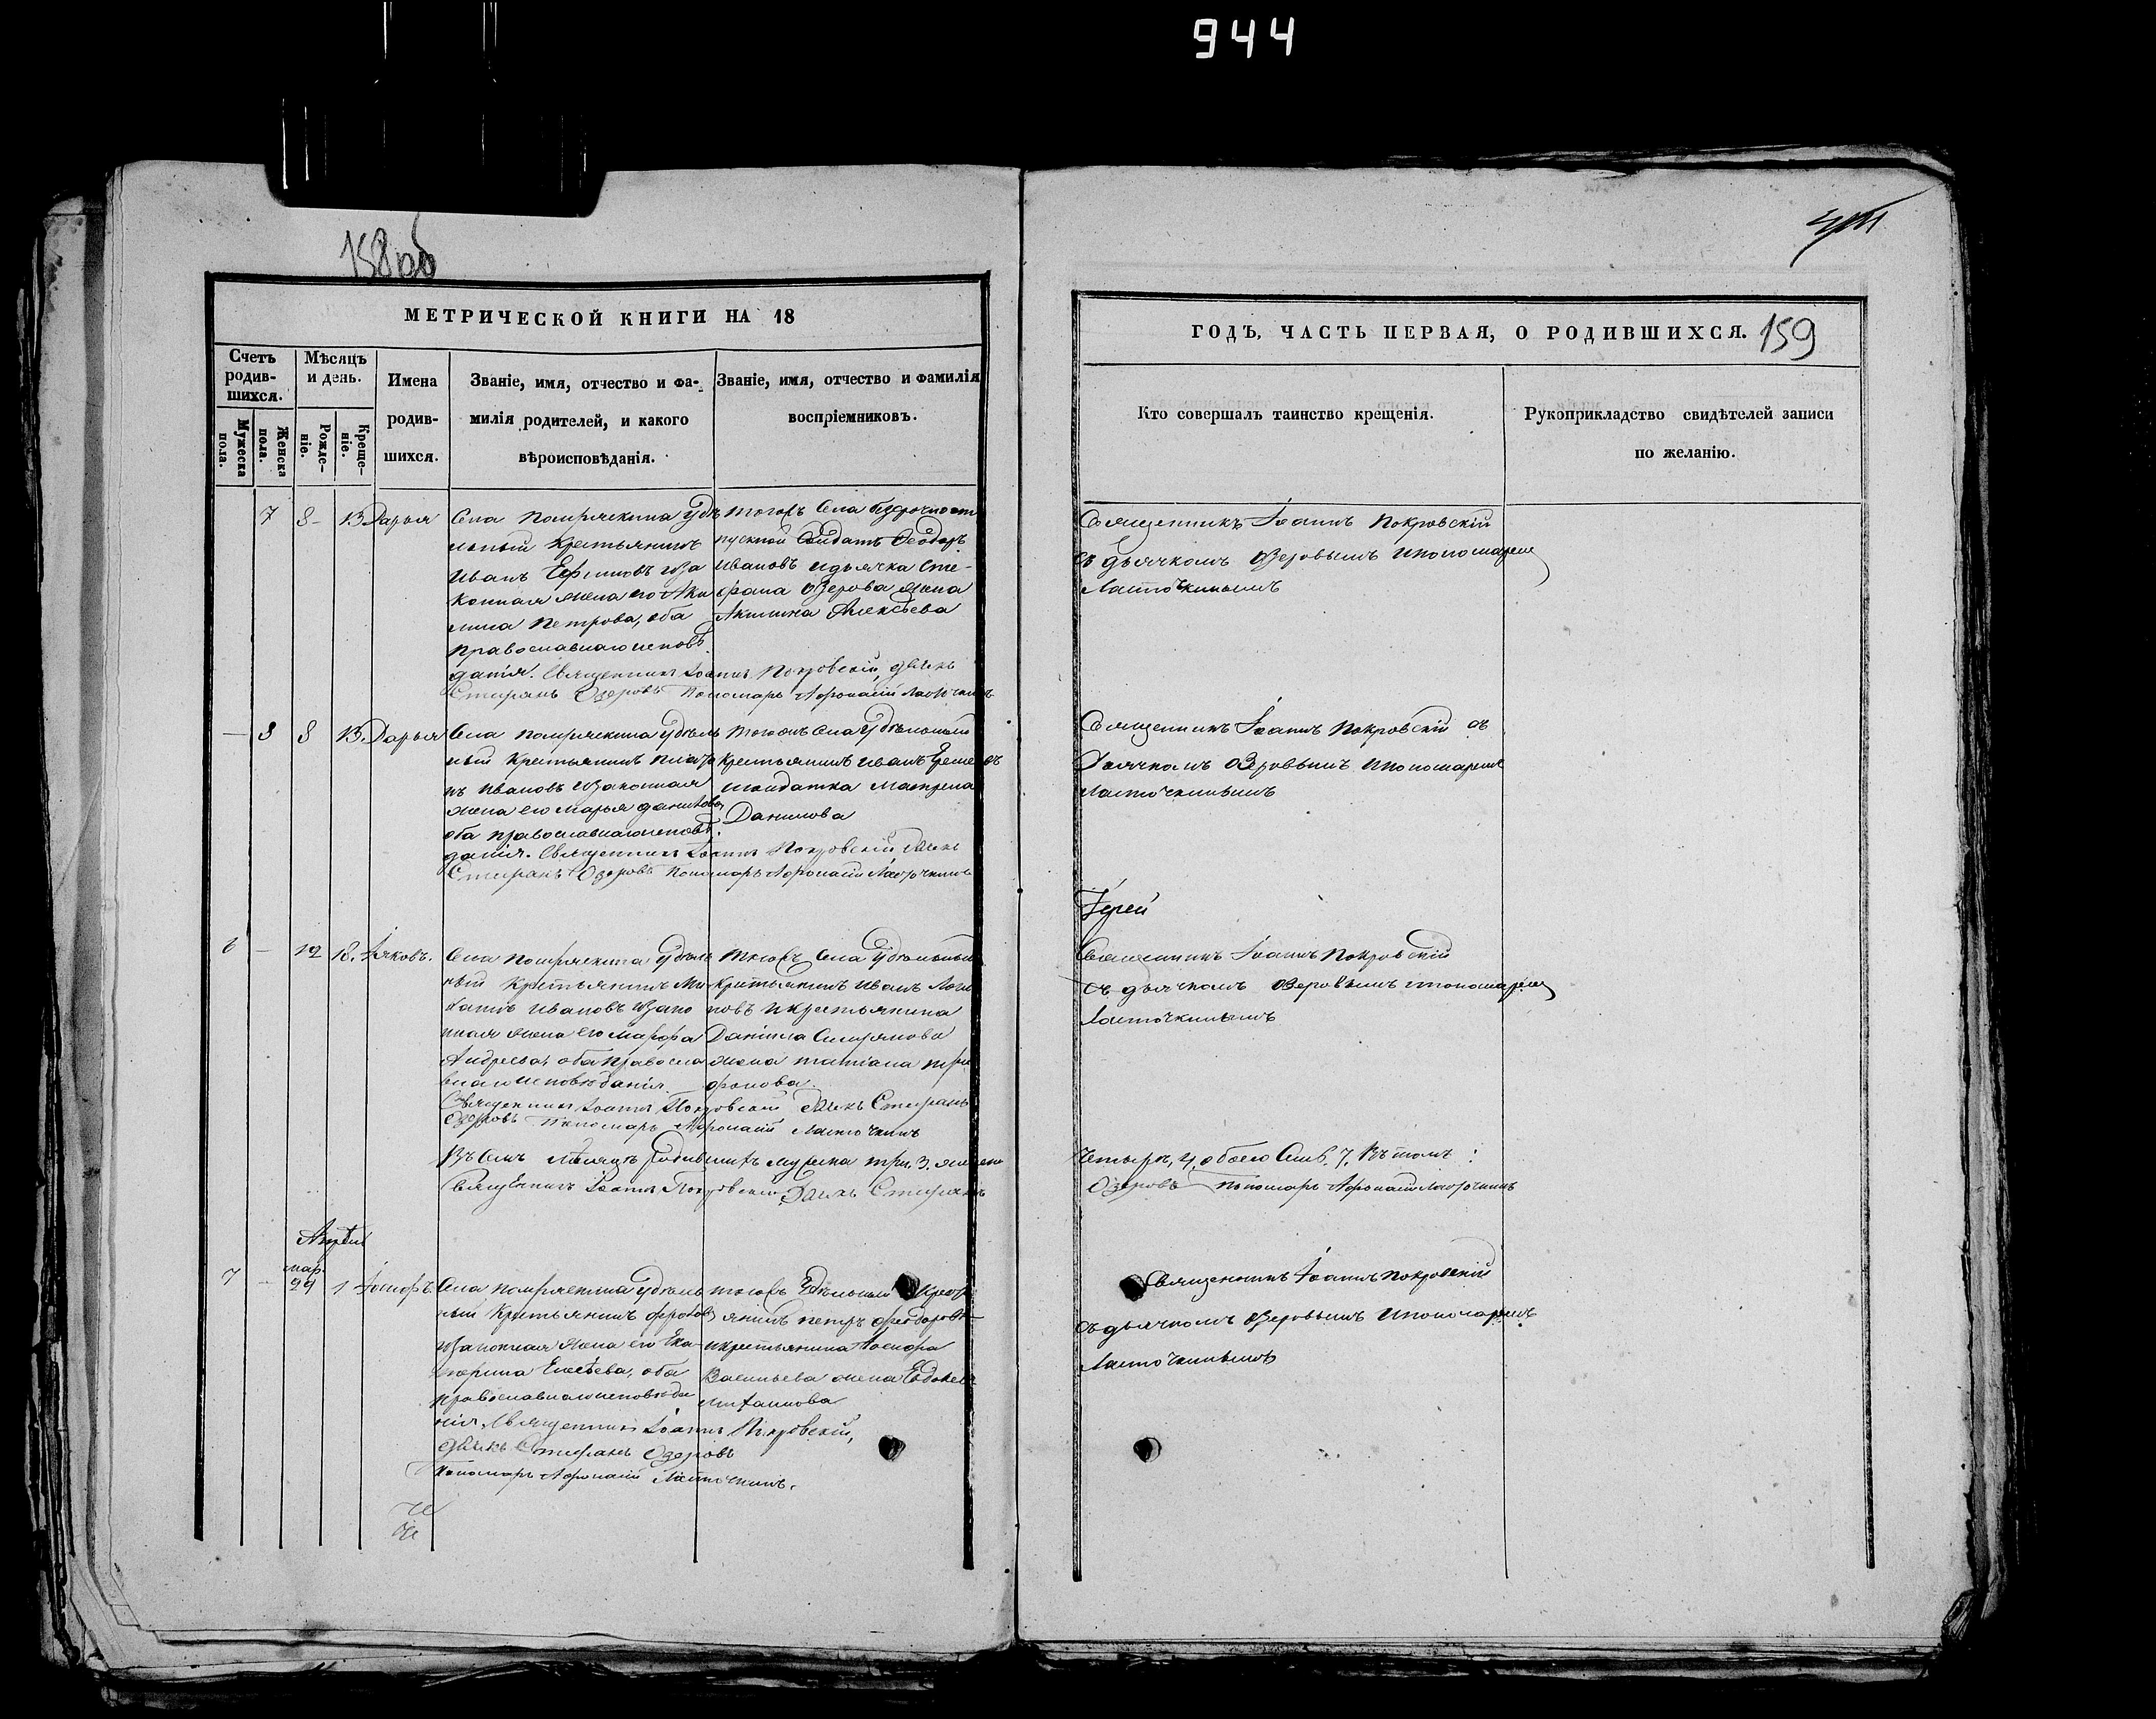 944
158об
МЕТРИЧЕСКОЙ КНИГИ НА 18
Счетъ родив-шихся.
Мѣсяцъ и день.
Имена родив-шихся.
Званіе, имя, отчество и фа-милія родителей, и какого вѣроисповѣданія.
Званіе, имя, отчество и фамилія воспріемниковъ.
Мужеска пола.
Женска пола.
Рожде-ніе.
Креще-ніе.
7 8 13 Дарья
Села удѣ
льный крестьянинъ
Иванъ Ефимовъ иза
конная жена его Аки
лина Петрова, оба
православнаго исповѣ
данія. Священникъ Іоаннъ Покровскій, дьячекъ
Стефанъ Озеровъ Пономарь Афонасій Ласточкинъ
тогожъ Села безсрочноот
пускной Солдатъ Феодоръ
Ивановъ идьячка Сте-
фана Озерова жена
Акилина Алексѣева
— 8 8 13. Дарья
Села удѣль
ный крестьянинъ
Ивановъ изаконная
жена его Марья Данилова,
оба православнаго исповѣ.
данія. Священникъ Іоаннъ Покровскій дьячекъ
Стефанъ Озеровъ Пономарь Афонасій Ласточкинъ
тогожъ Села Удѣльный
крестьянинъ Иванъ
солдатка Матрена
Данилова
6 — 12 18. Іяковъ.
Села удѣль
ный крестьянинъ Ми
хаилъ Ивановъ изако
нная жена его Марфа
Андреева, оба правосла
внаго исповѣданія.
Священникъ Іоаннъ Покровскій Дьячекъ Стефанъ
Озеровъ Пономарь Афонасій Ласточкинъ
тогожъ Села Удѣльный
крестьянинъ Иванъ Логи
новъ икрестьянина
Даніила
жена Татіана
фонова.
Въ семъ Мѣсяцѣ Родившихъ мужска три, 3, женска
Священникъ Іоаннъ Покровскій Дьячекъ Стефанъ
Апрѣль
7 — мар. 29 1 Іосифъ.
Села удѣль
ный крестьянинъ
изаконная жена его Ека-
терина Елисѣева, оба
православнаго исповѣда
нія. Священникъ Іоаннъ Покровскій,
дьячекъ Стефанъ Озеровъ
Пономарь Афонасій Ласточкинъ.
тогожъ Удѣльный крест
янинъ Петръ Феодоровъ
икрестьянина Іосифа
Васильева жена Евдокея
Михаилова
ГОДЪ, ЧАСТЬ ПЕРВАЯ, О РОДИВШИХСЯ. 159
Кто совершалъ таинство крещенія.
Рукоприкладство свидѣтелей записи по желанію.
Священникъ Іоаннъ Покровскій
съ дьячкомъ Озеровымъ ипономаремъ
Ласточкинымъ
Священникъ Іоаннъ Покровскій съ
Дьячкомъ Озеровымъ ипономаремъ
Ласточкинымъ
Іерей
Священникъ Іоаннъ Покровскій
съ дьячкомъ Озеровымъ ипономаремъ
Ласточкинымъ
четыре, 4, обоего 7. Въ томъ :
Озеровъ Пономарь Афонасій Ласточкинъ
Священникъ Іоаннъ Покровскій
съ дьячкомъ Озеровымъ ипономаремъ
Ласточкинымъ